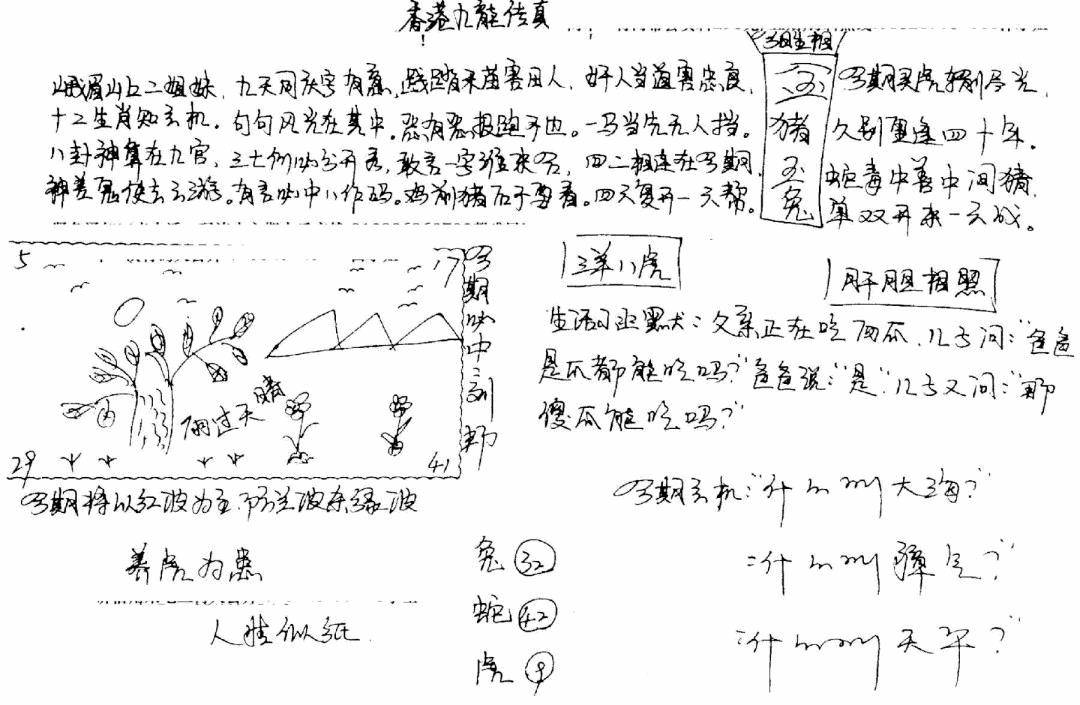 香港九龍传真
峨眉山上二姐妹，九天同庆字有意，践踏禾苗害田人，奸人当道害忠良，
十二生肖知玄机。句句风光在其中。恶有恶报跑不也。一马当先无人挡。
八卦神算在九宫，三七例必字开香，敢言一字谁来旺，四二相连在今期，
神差鬼使去云游。有言必中八作码。鸡前猪后于要看。四天复开一天帮。
今期生相
猪
玉
兔
今期买虎输尽光，
久别重逢四十年。
蛇毒中善中间猪，
单双开来一云战。
5
17
29
41
雨过天晴
今期必中一刮部
三羊八虎
肝胆相照
生活习近黑犬：父亲正在吃西瓜，儿子问："爸爸
是瓜都能吃吗？"爸爸说："是"儿子又问："那
傻瓜能吃吗？"
今期将以红波为主，防兰波杀绿波
养虎为患
人性似纸
兔 32
蛇 42
虎 9
今期玄机："什么叫大海？"
："什么叫骅气？"
："什么叫天平？"